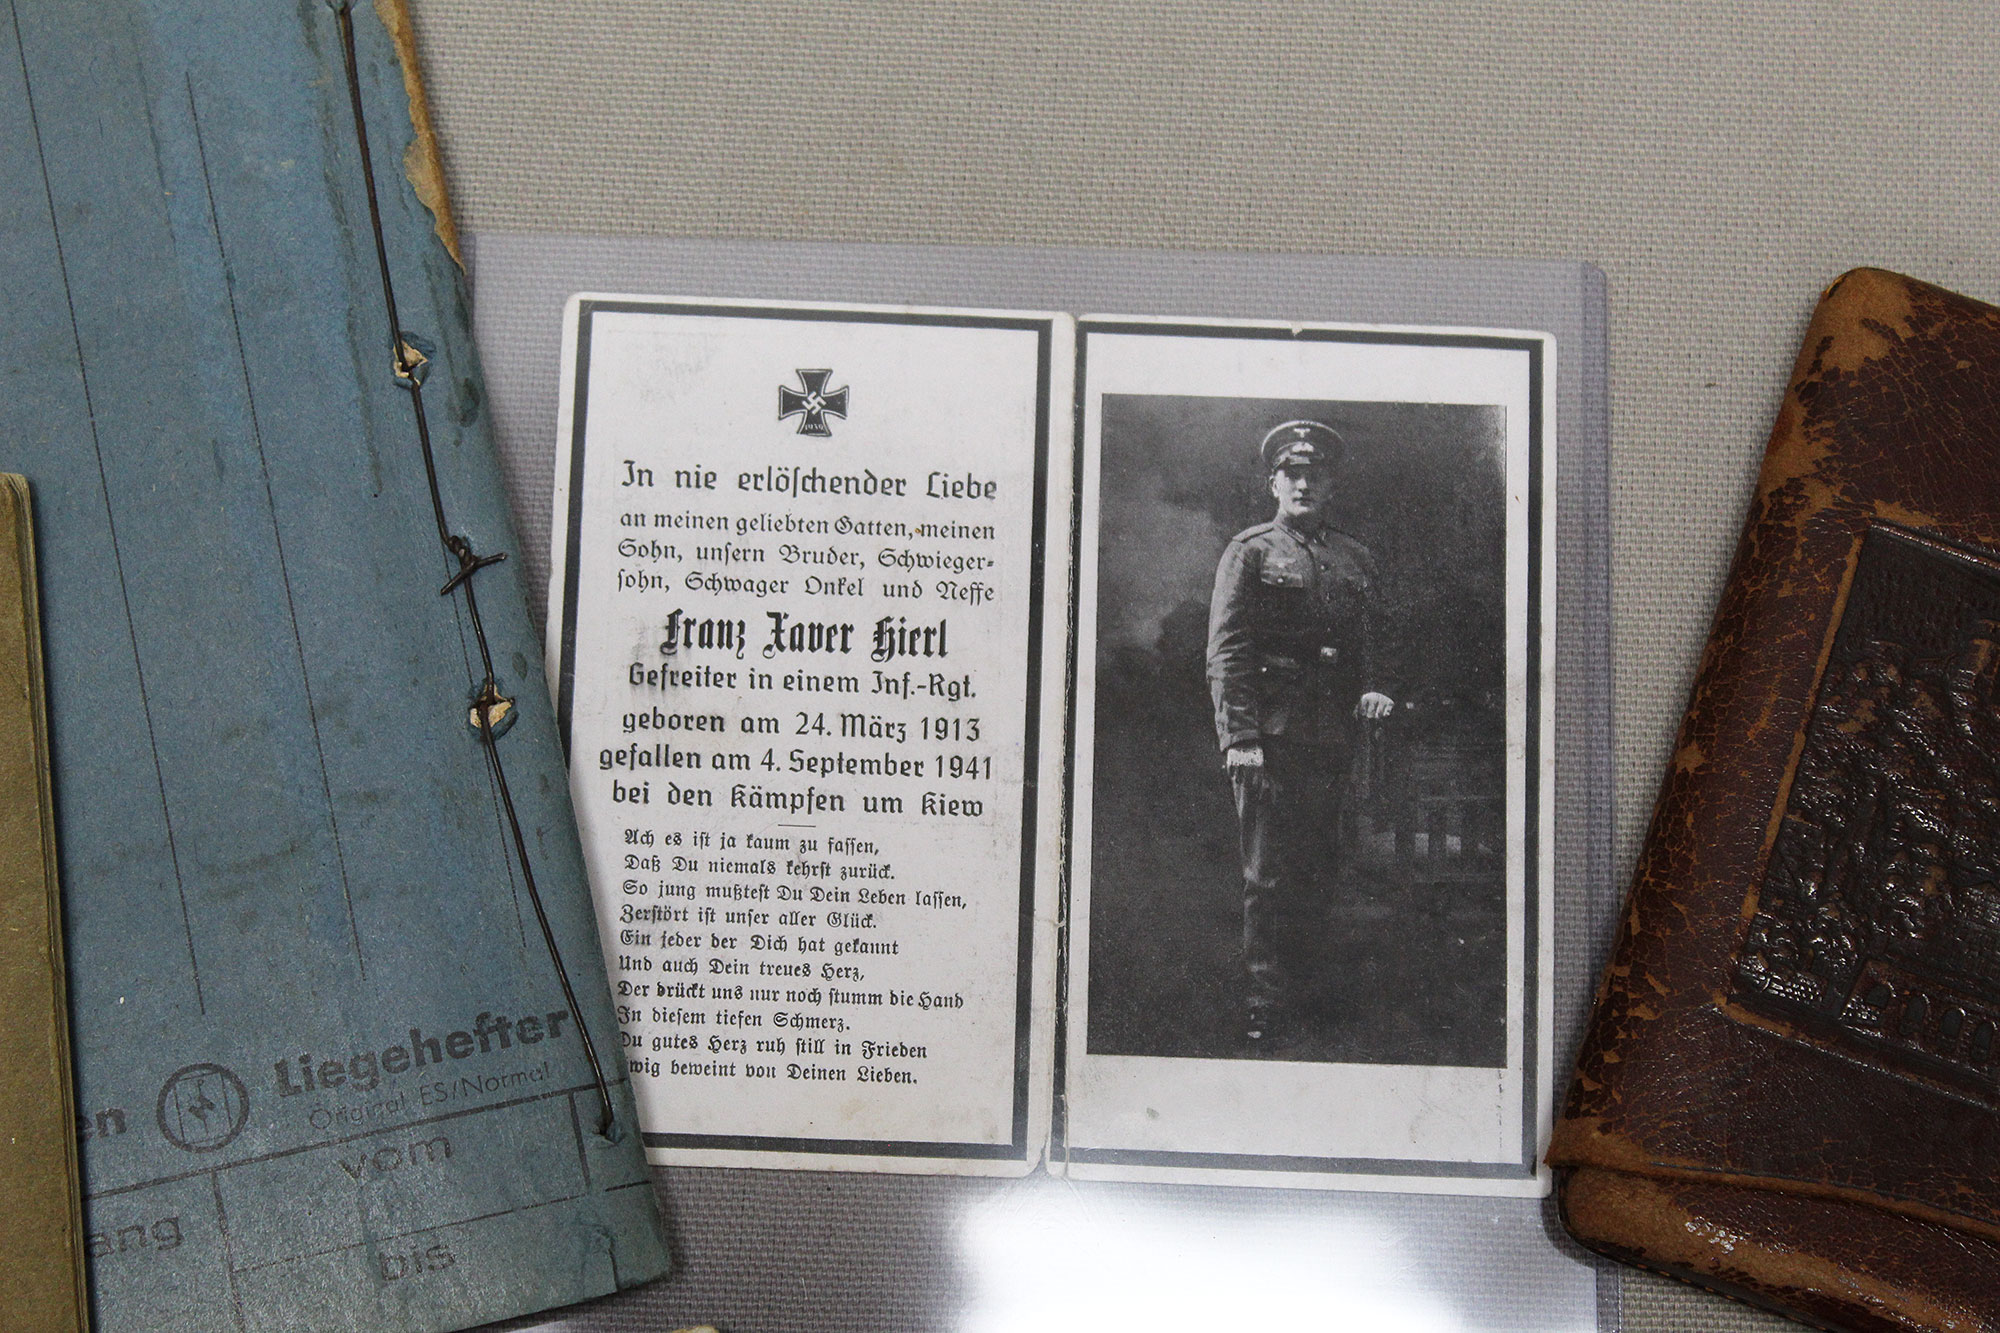 1939
In nie erlöschender Liebe
an meinen geliebten Gatten, meinen
Sohn, unsern Bruder, Schwieger-
sohn, Schwager Onkel und Neffe
Franz Xaver Hierl
Gefreiter in einem Inf.-Rgt.
geboren am 24. März 1913
gefallen am 4. September 1941
bei den Kämpfen um Kiew
Ach es ist ja kaum zu fassen,
Daß Du niemals kehrst zurück.
So jung mußtest Du Dein Leben lassen,
Zerstört ist unser aller Glück.
Ein jeder der Dich hat gekannt
Und auch Dein treues Herz,
Der drückt uns nur noch stumm die Hand
In diesem tiefen Schmerz.
Du gutes Herz ruh still in Frieden
wig beweint von Deinen Lieben.
en
Liegehefter
Original ES/Normal
vom
ang
bis